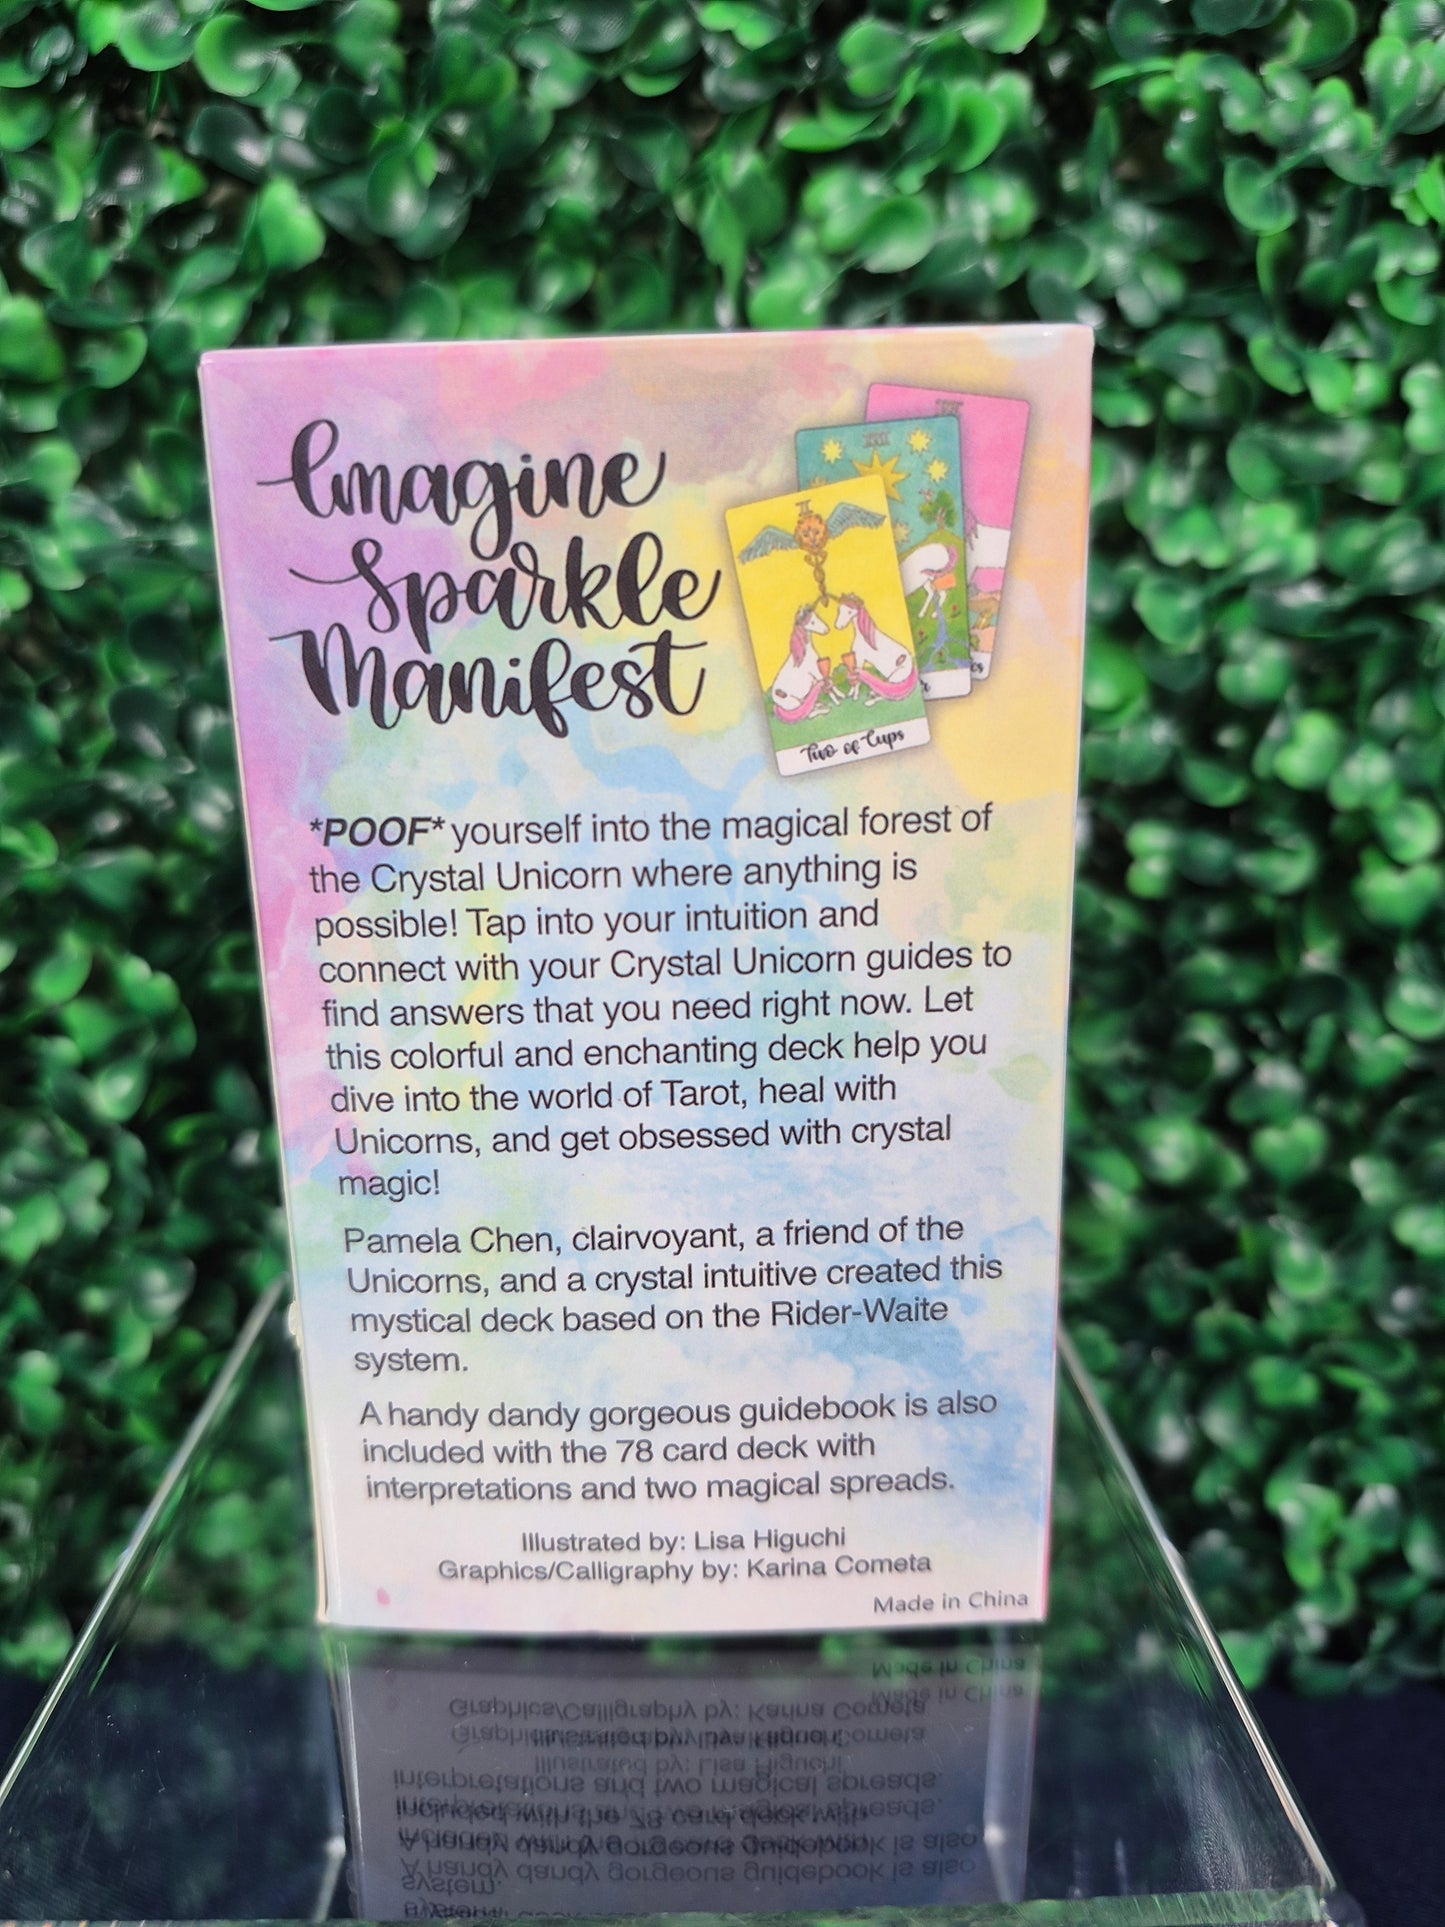 Imagine
Sparkle
Manifest
Two of Cups
*POOF* yourself into the magical forest of
the Crystal Unicorn where anything is
possible! Tap into your intuition and
connect with your Crystal Unicorn guides to
find answers that you need right now. Let
this colorful and enchanting deck help you
dive into the world of Tarot, heal with
Unicorns, and get obsessed with crystal
magic!
Pamela Chen, clairvoyant, a friend of the
Unicorns, and a crystal intuitive created this
mystical deck based on the Rider-Waite
system.
A handy dandy gorgeous guidebook is also
included with the 78 card deck with
interpretations and two magical spreads.
Illustrated by: Lisa Higuchi
Graphics/Calligraphy by: Karina Cometa
Made in China